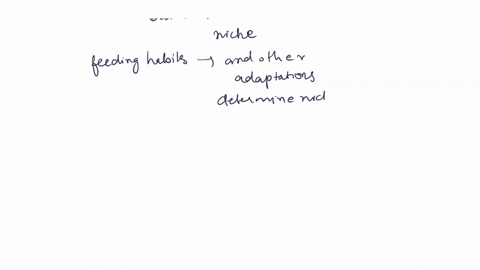 niche
feeding habits → and other
adaptations
determine nich